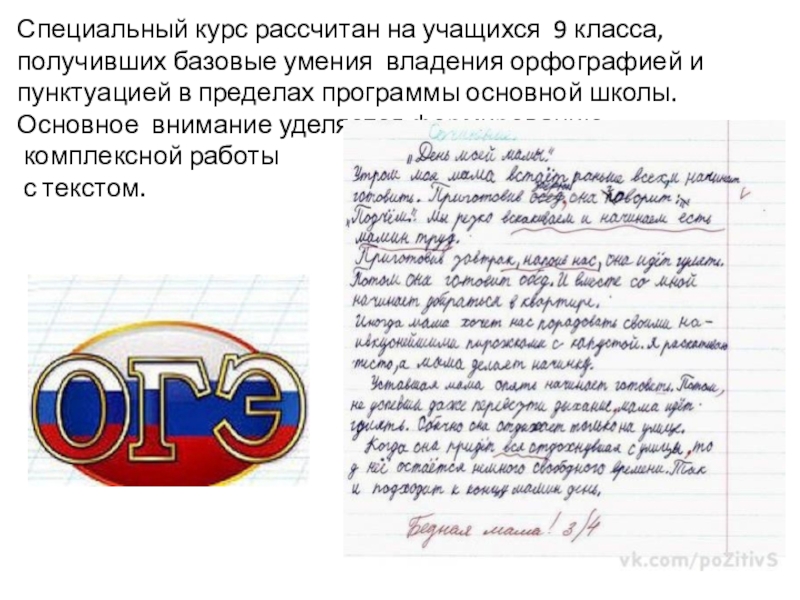 Специальный курс рассчитан на учащихся 9 класса,
получивших базовые умения владения орфографией и
пунктуацией в пределах программы основной школы.
Основное внимание уделяется
комплексной работы
с текстом.
Сочинение.
„День моей мамы."
Утром моя мама встаёт раньше всех, и начинает
готовить. Приготовив обед, она говорит:
„Подъём". Мы резко вскакиваем и начинаем есть
мамин труд.
Приготовив завтрак, накрыв нас, она идёт гулять.
Потом она готовит обед. И вместе со мной
начинает убираться в квартире.
Иногда мама хочет нас порадовать своими на-
ивкуснейшими пирожками с капустой. Я раскатываю
тесто, а мама делает начинку.
Уставшая мама опять начинает готовить. Потом,
не успевши даже перевезти дыхание, мама идёт
гулять. Обычно она отдыхает только на улице.
Когда она придёт вся отдохнувшая с улицы, то
у неё остаётся немного свободного времени. Так
и подходит к концу мамин день.
Бедная мама! 3/4
ОГЭ
vk.com/poZitivS